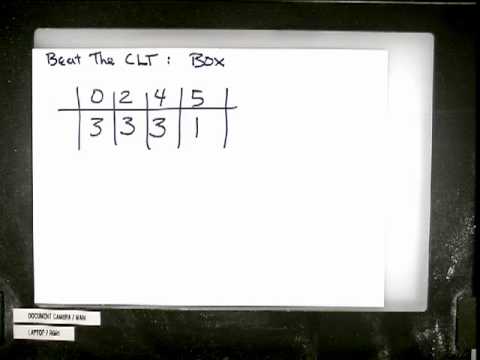 Beat The CLT : Box
0 2 4 5
3 3 3 1
DOCUMENT CAMERA / MAIN
LAPTOP / RGB1